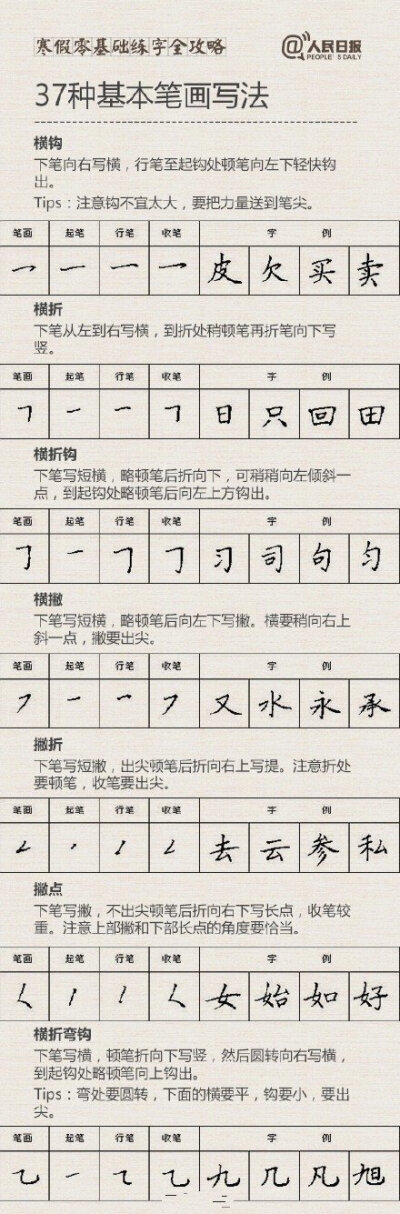 寒假零基础练字全攻略
@人民日报
PEOPLE'S DAILY
37种基本笔画写法
横钩
下笔向右写横，行笔至起钩处顿笔向左下轻快钩
出。
Tips：注意钩不宜太大，要把力量送到笔尖。
笔画 起笔 行笔 收笔 字 例
乛 一 一 乛 皮 欠 买 卖
横折
下笔从左到右写横，到折处稍顿笔再折笔向下写
竖。
笔画 起笔 行笔 收笔 字 例
𠃍 一 一 𠃍 日 只 回 田
横折钩
下笔写短横，略顿笔后折向下，可稍稍向左倾斜一
点，到起钩处略顿笔后向左上方钩出。
笔画 起笔 行笔 收笔 字 例
𠃌 一 𠃍 𠃌 习 司 句 匀
横撇
下笔写短横，略顿笔后向左下写撇。横要稍向右上
斜一点，撇要出尖。
笔画 起笔 行笔 收笔 字 例
㇇ 一 一 ㇇ 又 水 永 承
撇折
下笔写短撇，出尖顿笔后折向右上写提。注意折处
要顿笔，收笔要出尖。
笔画 起笔 行笔 收笔 字 例
𠃋 丶 丿 𠃋 去 云 参 私
撇点
下笔写撇，不出尖顿笔后折向右下写长点，收笔较
重。注意上部撇和下部长点的角度要恰当。
笔画 起笔 行笔 收笔 字 例
𡿨 丿 丿 𡿨 女 始 如 好
横折弯钩
下笔写横，顿笔折向下写竖，然后圆转向右写横，
到起钩处略顿笔向上钩出。
Tips：弯处要圆转，下面的横要平，钩要小，要出
尖。
笔画 起笔 行笔 收笔 字 例
乙 一 ㇍ 乙 九 几 凡 旭